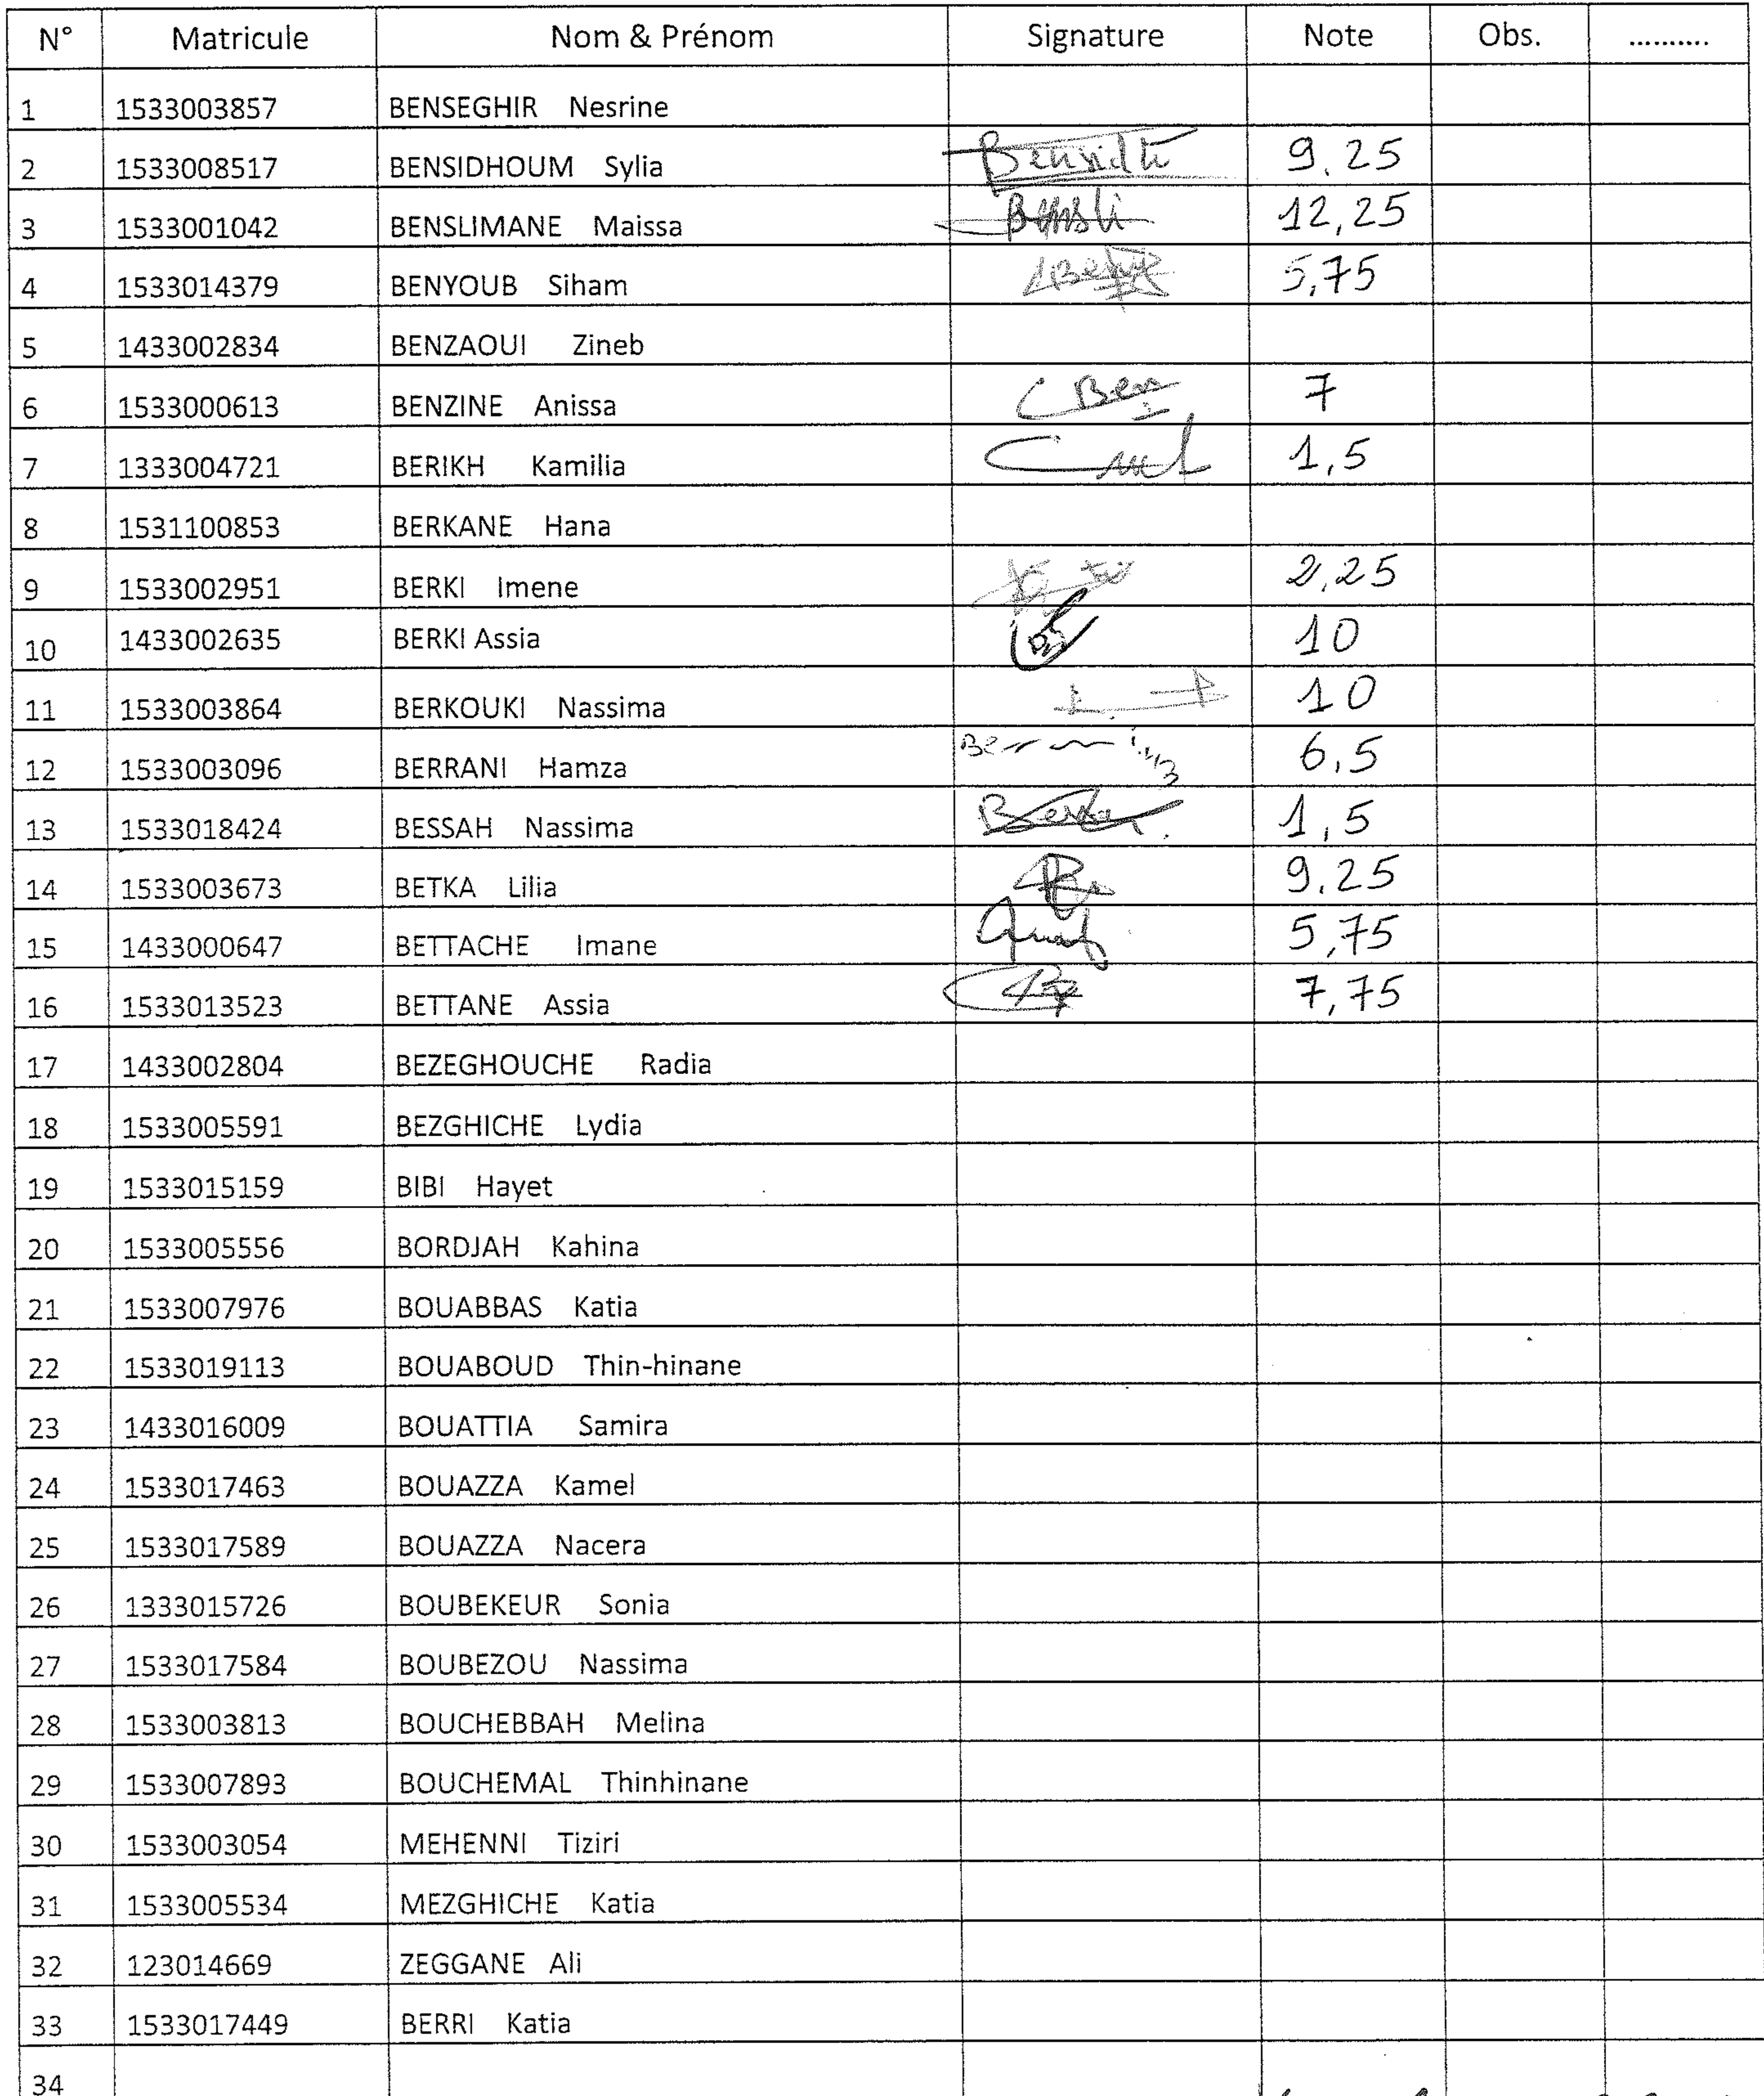 N° Matricule Nom & Prénom Signature Note Obs. ..........
1 1533003857 BENSEGHIR Nesrine
2 1533008517 BENSIDHOUM Sylia Bensidh 9.25
3 1533001042 BENSLIMANE Maissa Bensli 12,25
4 1533014379 BENYOUB Siham 5,75
5 1433002834 BENZAOUI Zineb
6 1533000613 BENZINE Anissa Ben 7
7 1333004721 BERIKH Kamilia 1,5
8 1531100853 BERKANE Hana
9 1533002951 BERKI Imene 2,25
10 1433002635 BERKI Assia 10
11 1533003864 BERKOUKI Nassima 10
12 1533003096 BERRANI Hamza 6,5
13 1533018424 BESSAH Nassima 1,5
14 1533003673 BETKA Lilia 9.25
15 1433000647 BETTACHE Imane 5,75
16 1533013523 BETTANE Assia 7,75
17 1433002804 BEZEGHOUCHE Radia
18 1533005591 BEZGHICHE Lydia
19 1533015159 BIBI Hayet
20 1533005556 BORDJAH Kahina
21 1533007976 BOUABBAS Katia
22 1533019113 BOUABOUD Thin-hinane
23 1433016009 BOUATTIA Samira
24 1533017463 BOUAZZA Kamel
25 1533017589 BOUAZZA Nacera
26 1333015726 BOUBEKEUR Sonia
27 1533017584 BOUBEZOU Nassima
28 1533003813 BOUCHEBBAH Melina
29 1533007893 BOUCHEMAL Thinhinane
30 1533003054 MEHENNI Tiziri
31 1533005534 MEZGHICHE Katia
32 123014669 ZEGGANE Ali
33 1533017449 BERRI Katia
34